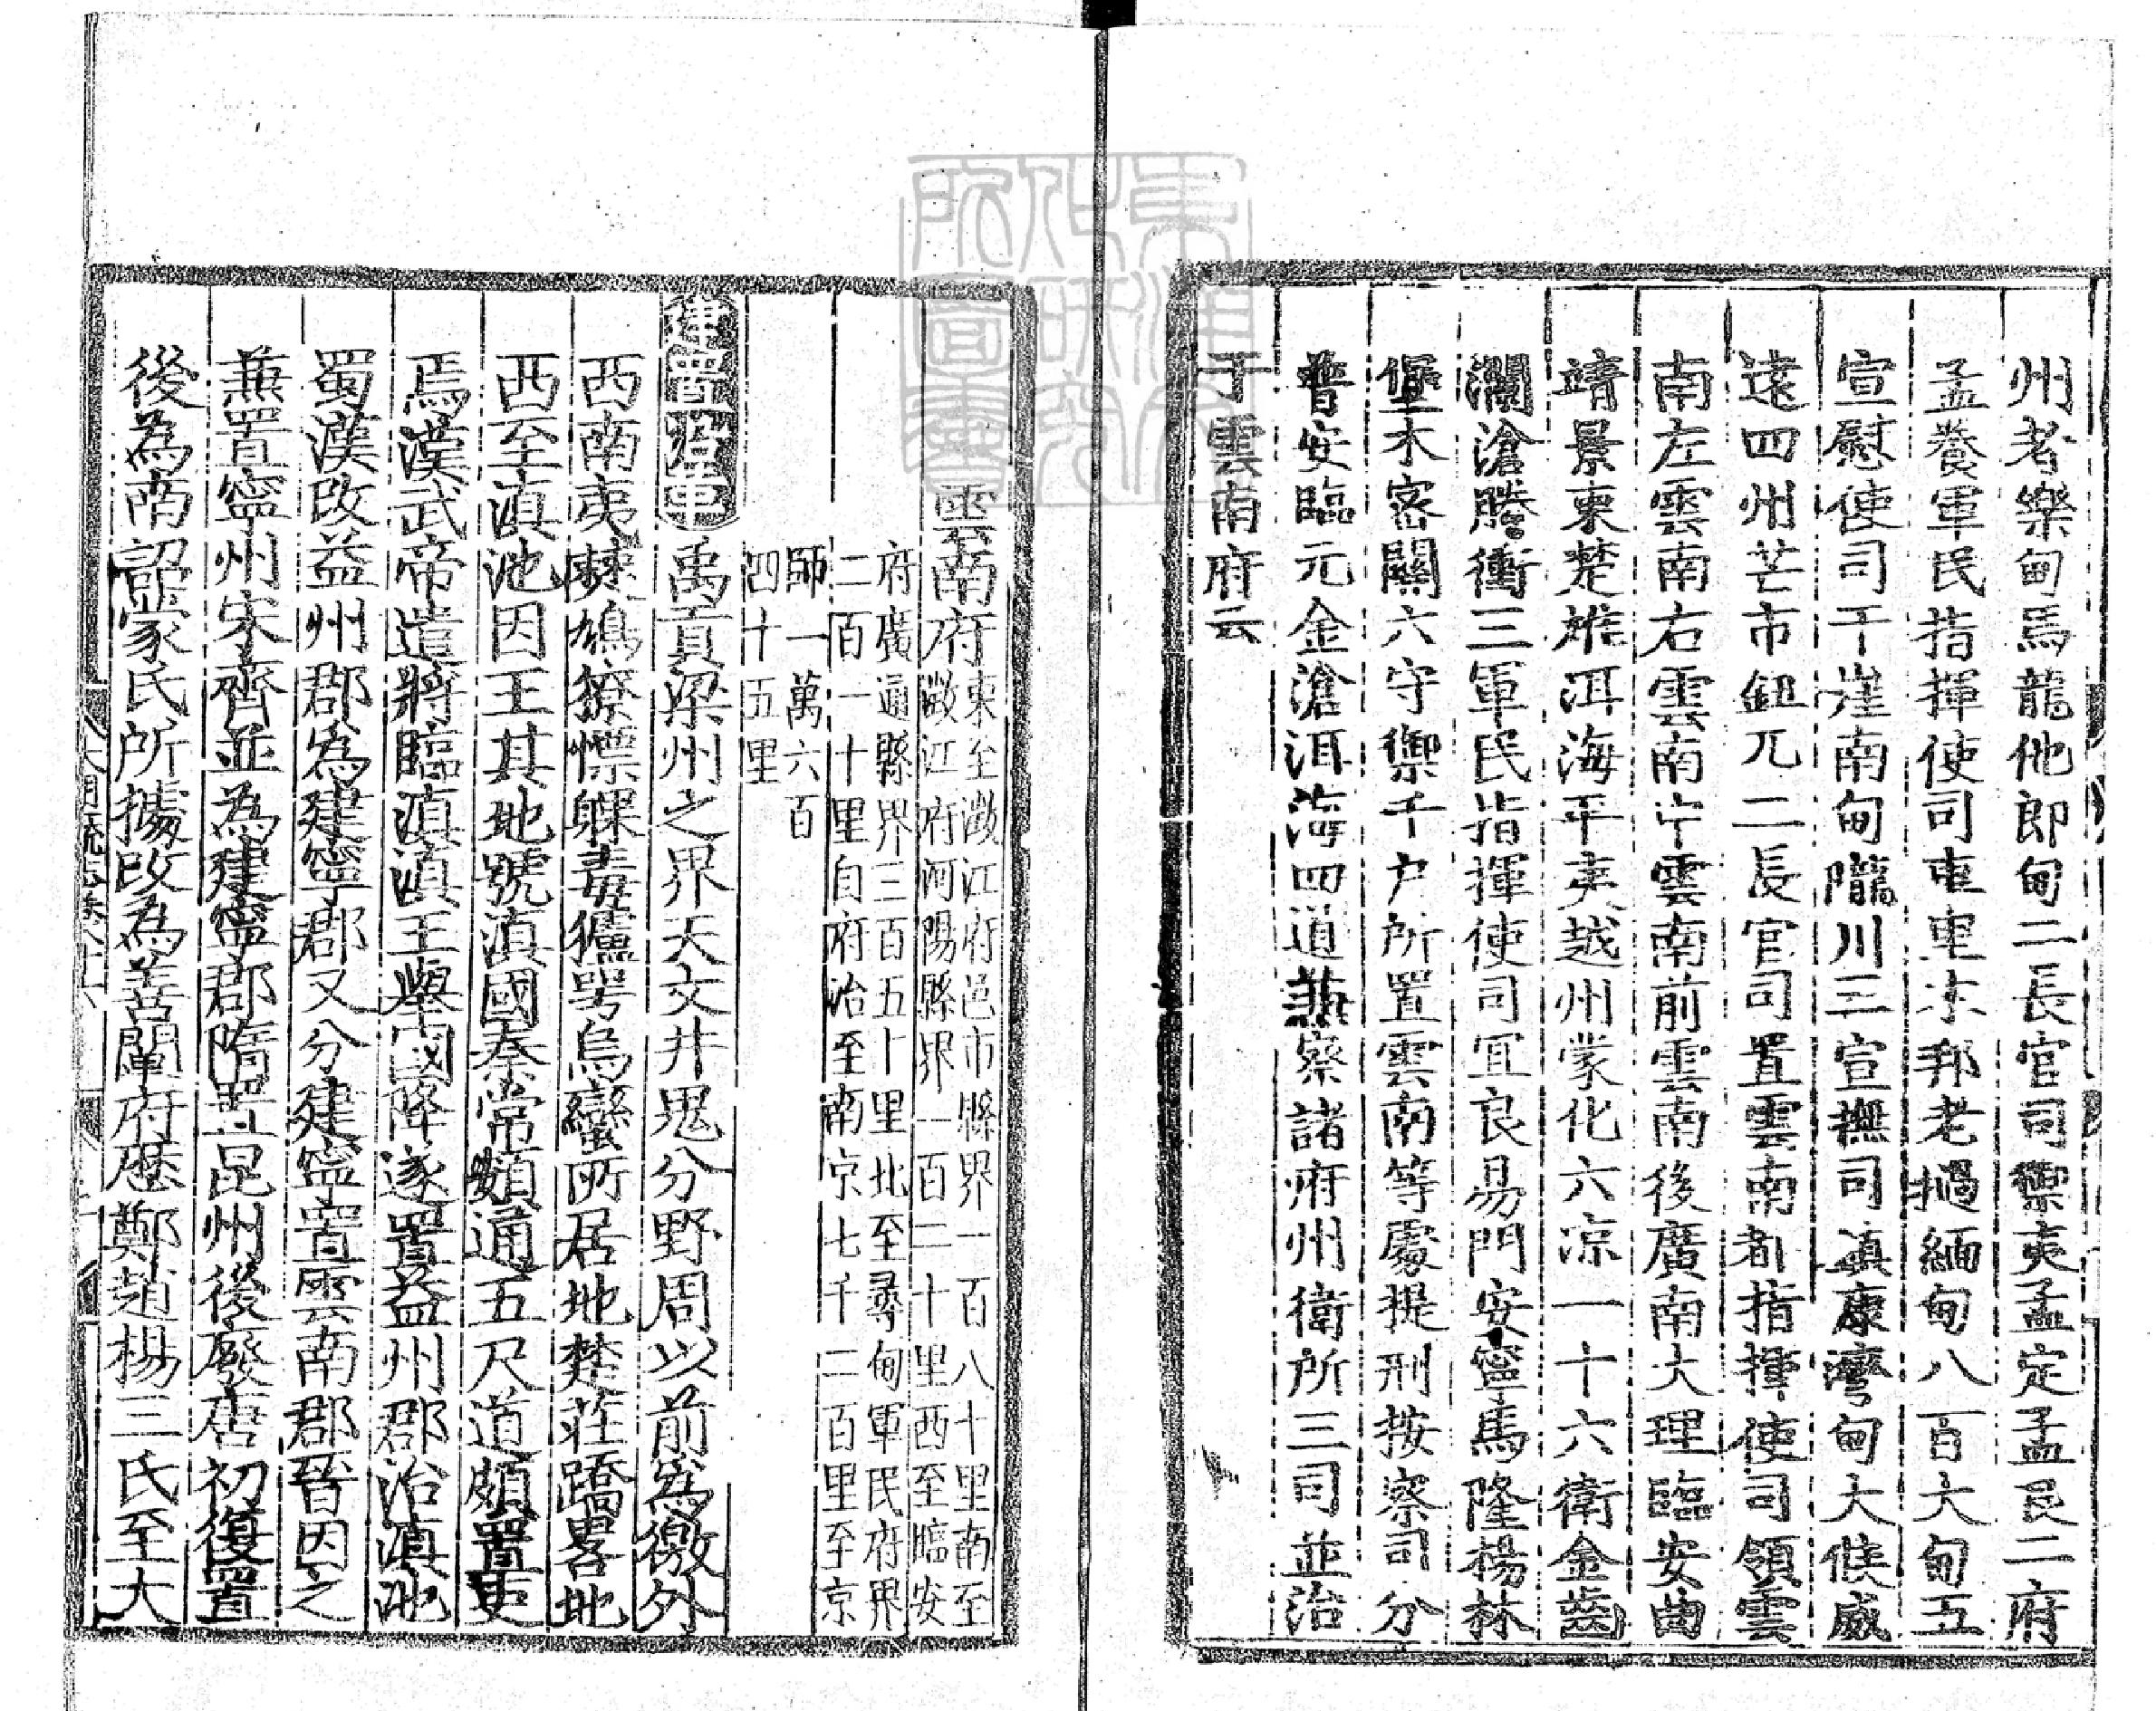 州者樂甸馬龍他郎甸二長官司禦夷孟定孟艮二府
孟養軍民指揮使司車里木邦老撾緬甸八百大甸五
宣慰使司干崖南甸隴川三宣撫司鎮康灣甸大候威
遠四州芒市鈕兀二長官司置雲南都指揮使司領雲
南左雲南右雲南中雲南前雲南後廣南大理臨安曲
靖景東楚雄洱海平夷越州蒙化六凉一十六衛金齒
瀾滄騰衝三軍民指揮使司宜良易門安寧馬隆楊林
堡木密關六守禦千户所置雲南等處提刑按察司分
普安臨元金滄洱海四道兼察諸府州衛所三司並治
于雲南府云
雲南府東至澂江府邑市縣界一百八十里南至
澂江府河陽縣界一百二十里西至臨安
府廣通縣界三百五十里北至尋甸軍民府界
二百一十里自府治至南京七千二百里至京
師一萬六百
四十五里
建置沿革禹貢梁州之界天文井鬼分野周以前爲徼外
西南夷僰鳩獠慓躶毒㺐咢烏蠻所居地楚莊蹻畧地
西至滇池因王其地號滇國秦常頞通五尺道頗置吏
焉漢武帝遣將臨滇滇王舉國降遂置益州郡治滇池
蜀漢改益州郡爲建寧郡又分建寧置雲南郡晉因之
兼置寧州宋齊並為建寧郡隋置昆州後廢唐初復置
後為南詔蒙氏所據改為善闡府歷鄭趙楊三氏至大